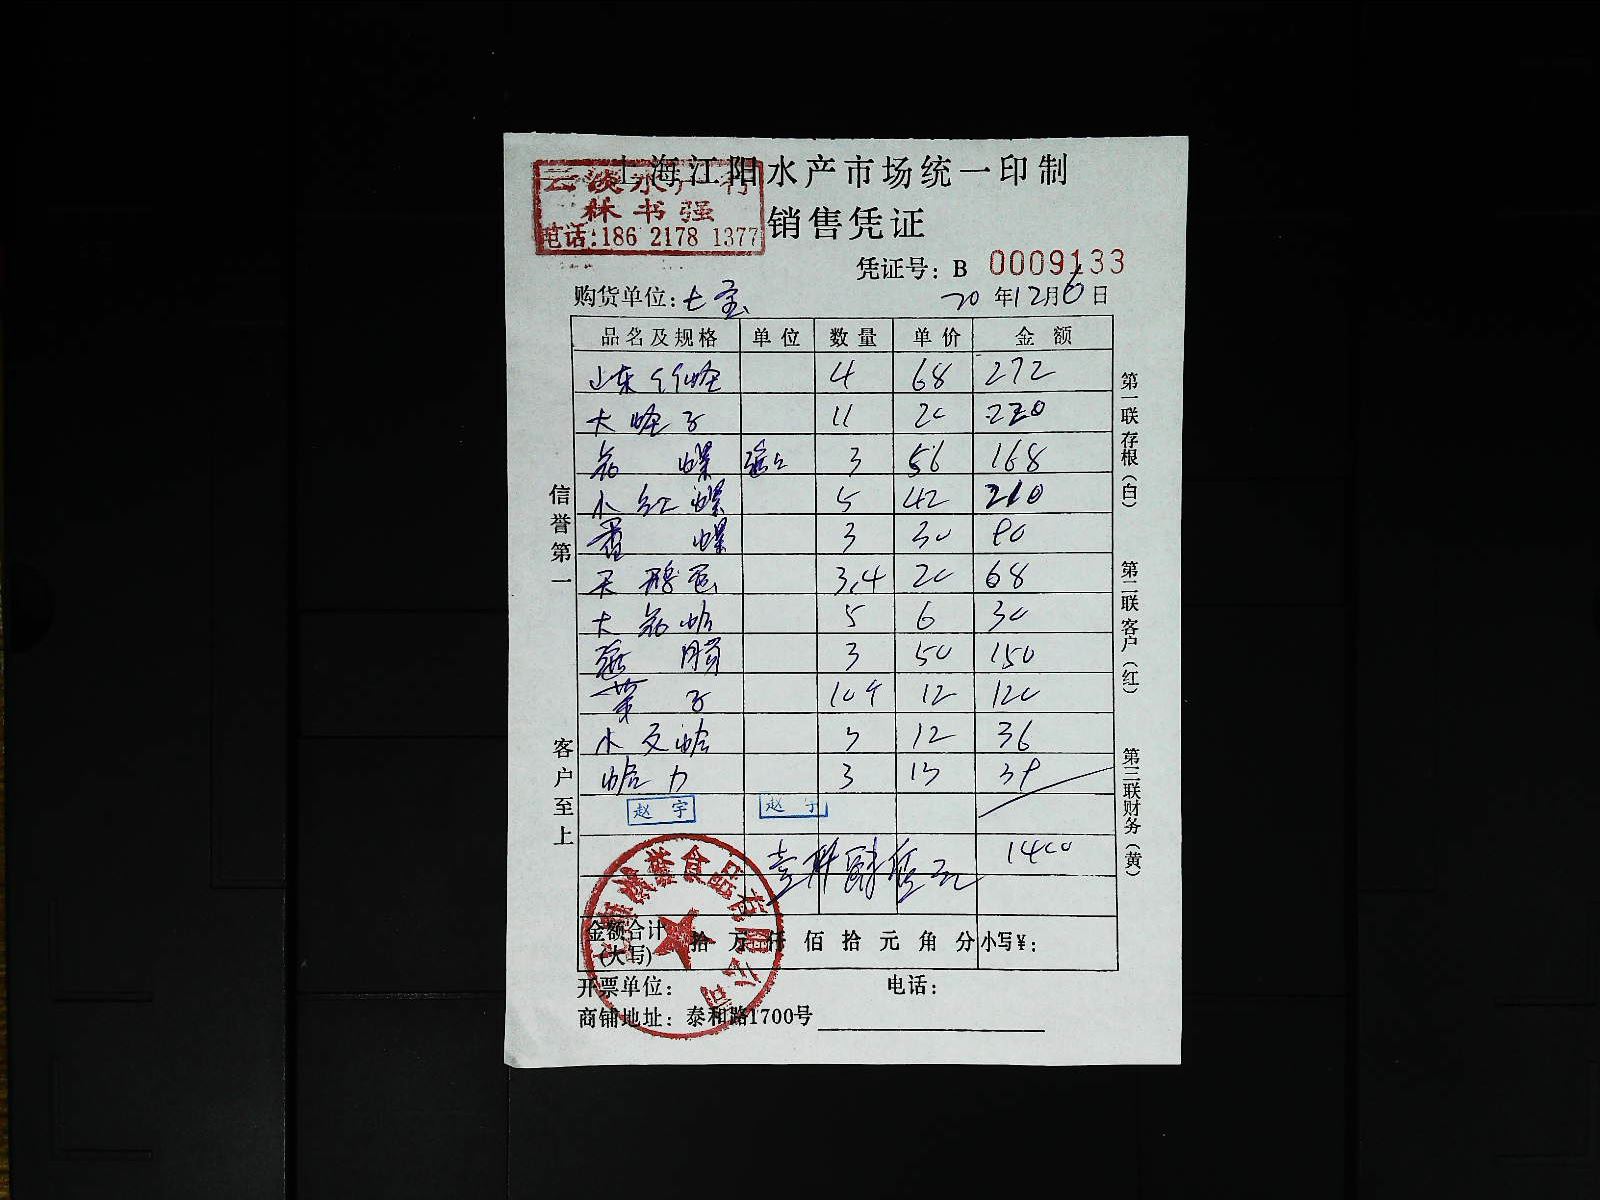 上海江阳水产市场统一印制
云淡水产行
林书强
电话:186 2178 1377
销售凭证
凭证号: B 0009133
购货单位: 七宝 20 年12月6日
品名及规格 单位 数量 单价 金额
山东竹蛏 4 68 272
大蛏子 11 20 220
螺 3 56 168
小红螺 5 42 210
螺 3 30 90
天鹅蛋 3.4 20 68
大 5 6 30
3 50 150
子 10个 12 120
小文蛤 3 12 36
蛤 3 13 39
赵宇 赵宇
壹仟肆佰元 1400
金额合计(大写) 拾 万 仟 佰 拾 元 角 分 小写¥:
开票单位: 电话:
商铺地址: 泰和路1700号
食品有限公司
信誉第一
客户至上
第一联存根(白)
第二联客户(红)
第三联财务(黄)